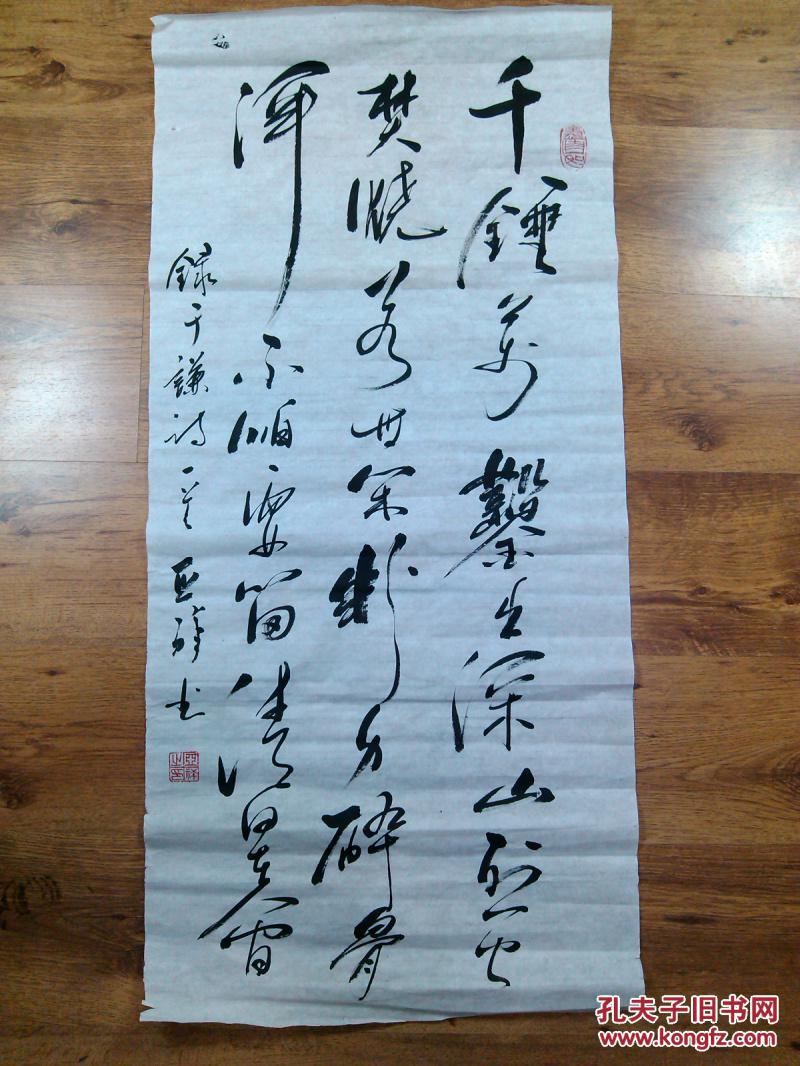 千錘萬鑿出深山烈火
焚燒若等閑粉身碎骨
渾不怕要留清白在人間
錄于謙詩一首 亞祥书
孔夫子旧书网
www.kongfz.com